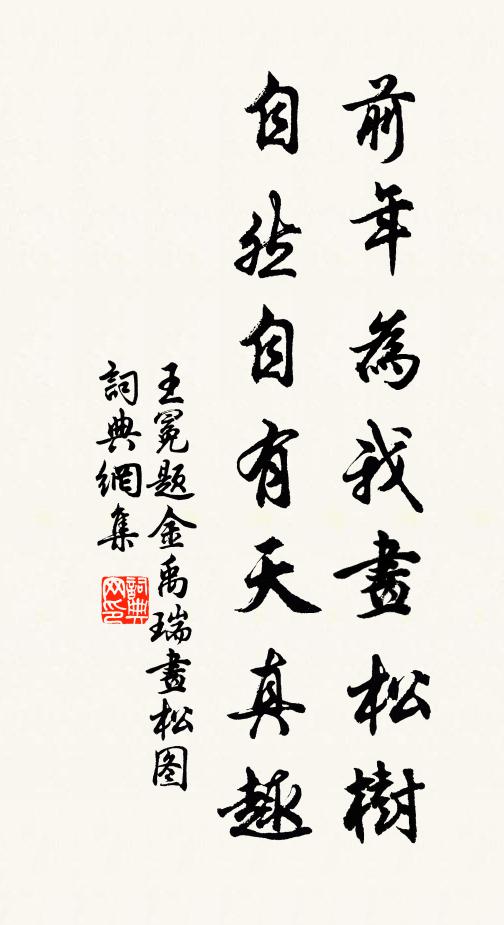 前年為我畫松樹
自然自有天真趣
王冕題金禹瑞畫松图
詞典網集
詞典
网印